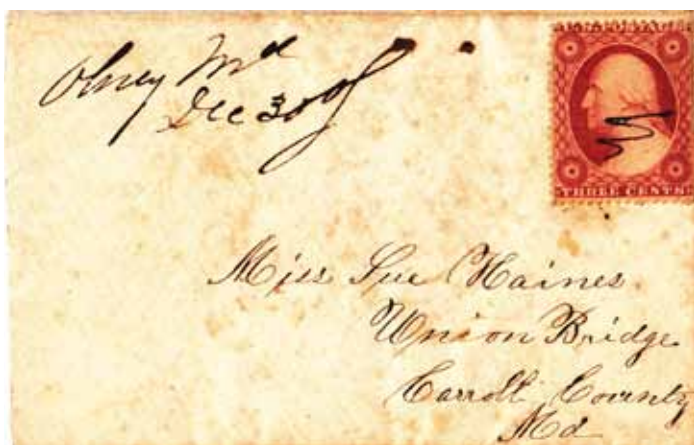 Olney Md
Dec 30th
THREE CENTS
Miss Sue Haines
Union Bridge
Carroll County
Md